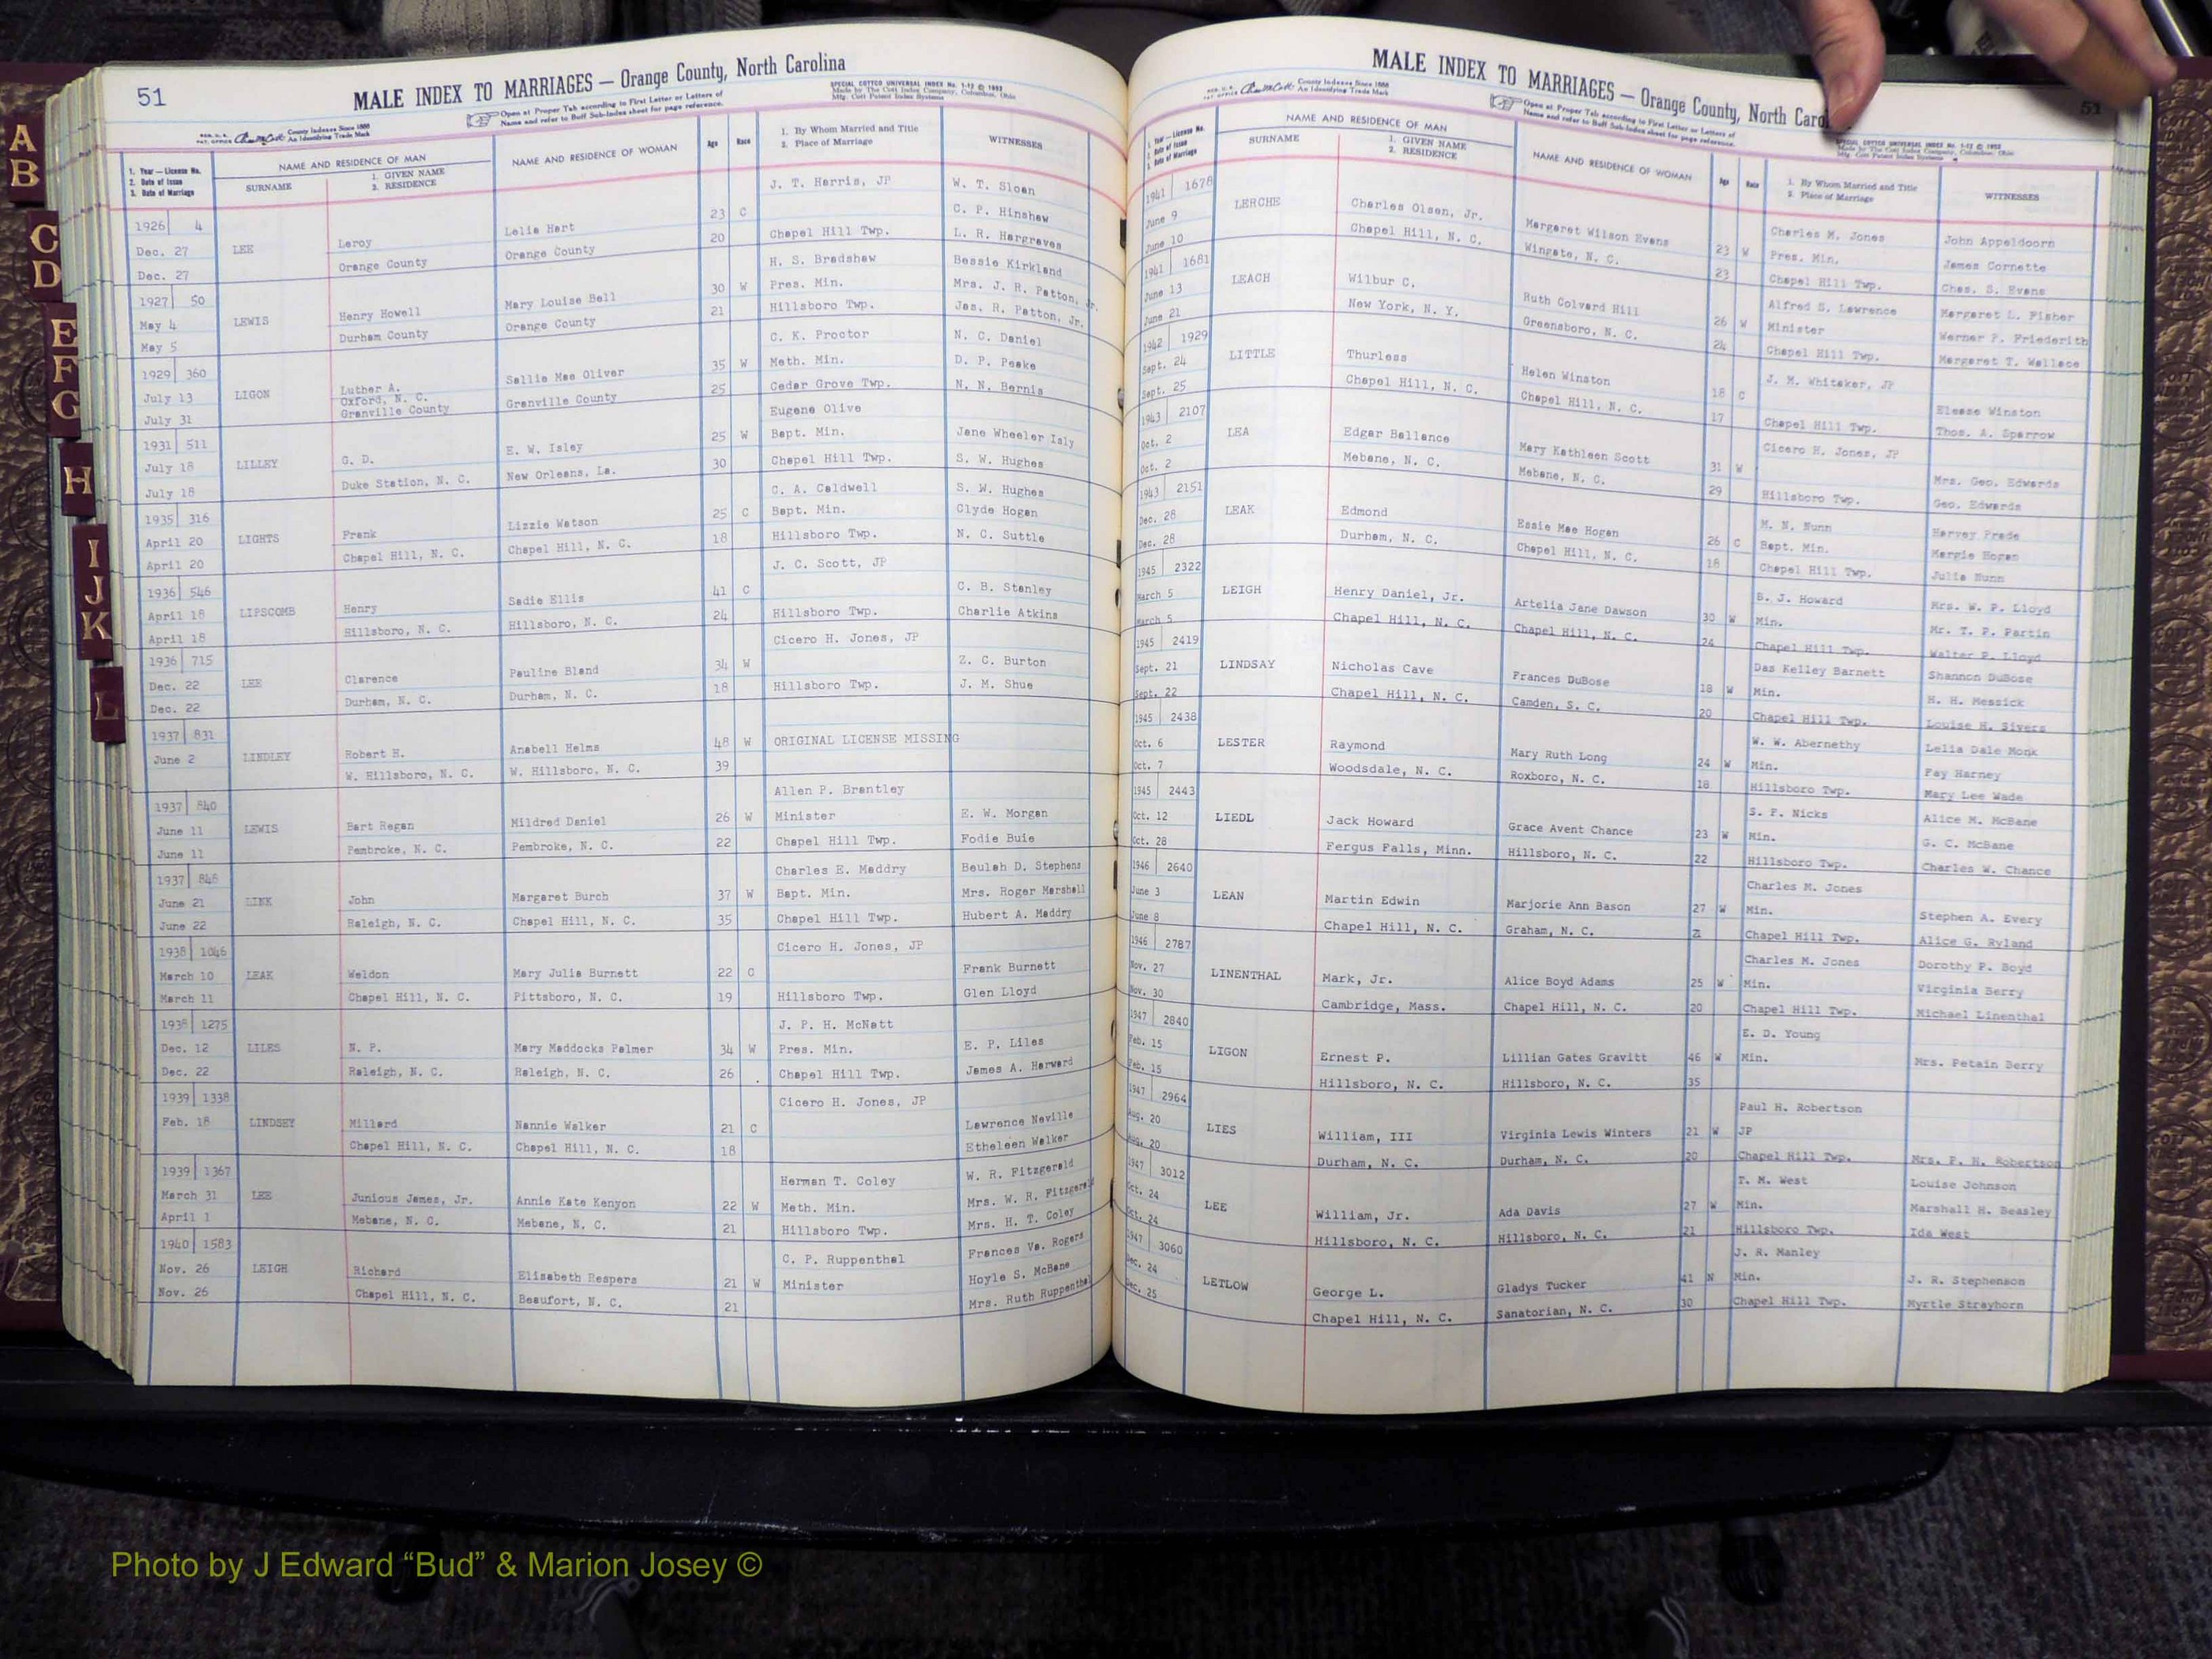 A
B
C
D
E
F
G
H
I
J
K
L
51
MALE INDEX TO MARRIAGES — Orange County, North Carolina
Open at Proper Tab according to First Letter or Letters of
Name and refer to Buff Sub-Index sheet for page reference.
SPECIAL COTTCO UNIVERSAL INDEX No. 1-12 © 1952
Made by The Cott Index Company, Columbus, Ohio
Mfg. Cott Patent Index Systems
County Indexes Since 1888
An Identifying Trade Mark
1. Year — License No.
2. Date of Issue
3. Date of Marriage
NAME AND RESIDENCE OF MAN
SURNAME
1. GIVEN NAME
2. RESIDENCE
NAME AND RESIDENCE OF WOMAN
Age
Race
1. By Whom Married and Title
2. Place of Marriage
WITNESSES
1926 4 J. T. Harris, JP W. T. Sloan
Dec. 27 LEE Leroy Lelia Hart 23 C C. P. Hinshaw
Dec. 27 Orange County Orange County 20 Chapel Hill Twp. L. R. Hargraves
1927 50 H. S. Bradshaw Bessie Kirkland
May 4 LEWIS Henry Howell Mary Louise Bell 30 W Pres. Min. Mrs. J. R. Patton, Jr.
May 5 Durham County Orange County 21 Hillsboro Twp. Jas. R. Patton, Jr.
1929 360 C. K. Proctor N. C. Daniel
July 13 LIGON Luther A. Sallie Mae Oliver 35 W Meth. Min. D. P. Peake
Oxford, N. C.
July 31 Granville County Granville County 25 Cedar Grove Twp. N. N. Bernis
1931 511 Eugene Olive
July 18 LILLEY G. D. E. W. Isley 25 W Bapt. Min. Jane Wheeler Isly
July 18 Duke Station, N. C. New Orleans, La. 30 Chapel Hill Twp. S. W. Hughes
1935 316 C. A. Caldwell S. W. Hughes
April 20 LIGHTS Frank Lizzie Watson 25 C Bapt. Min. Clyde Hogan
April 20 Chapel Hill, N. C. Chapel Hill, N. C. 18 Hillsboro Twp. N. C. Suttle
1936 546 J. C. Scott, JP
April 18 LIPSCOMB Henry Sadie Ellis 41 C C. B. Stanley
April 18 Hillsboro, N. C. Hillsboro, N. C. 24 Hillsboro Twp. Charlie Atkins
1936 715 Cicero H. Jones, JP
Dec. 22 LEE Clarence Pauline Bland 34 W Z. C. Burton
Dec. 22 Durham, N. C. Durham, N. C. 18 Hillsboro Twp. J. M. Shue
1937 831
June 2 LINDLEY Robert H. Anabell Helms 48 W ORIGINAL LICENSE MISSING
W. Hillsboro, N. C. W. Hillsboro, N. C. 39
1937 840 Allen P. Brantley
June 11 LEWIS Bart Regan Mildred Daniel 26 W Minister E. W. Morgan
June 11 Pembroke, N. C. Pembroke, N. C. 22 Chapel Hill Twp. Fodie Buie
1937 846 Charles E. Maddry Beulah D. Stephens
June 21 LINK John Margaret Burch 37 W Bapt. Min. Mrs. Roger Marshall
June 22 Raleigh, N. C. Chapel Hill, N. C. 35 Chapel Hill Twp. Hubert A. Maddry
1938 1046 Cicero H. Jones, JP
March 10 LEAK Weldon Mary Julia Burnett 22 C Frank Burnett
March 11 Chapel Hill, N. C. Pittsboro, N. C. 19 Hillsboro Twp. Glen Lloyd
1938 1275 J. P. H. McNatt
Dec. 12 LILES N. P. Mary Maddocks Palmer 34 W Pres. Min. E. P. Liles
Dec. 22 Raleigh, N. C. Raleigh, N. C. 26 Chapel Hill Twp. James A. Harward
1939 1338 Cicero H. Jones, JP
Feb. 18 LINDSEY Millard Nannie Walker 21 C Lawrence Neville
Chapel Hill, N. C. Chapel Hill, N. C. 18 Etheleen Walker
1939 1367 Herman T. Coley W. R. Fitzgerald
March 31 LEE Junious James, Jr. Annie Kate Kenyon 22 W Meth. Min. Mrs. W. R. Fitzgerald
April 1 Mebane, N. C. Mebane, N. C. 21 Hillsboro Twp. Mrs. H. T. Coley
1940 1583 C. P. Ruppenthal Frances Va. Rogers
Nov. 26 LEIGH Richard Elisabeth Respers 21 W Minister Hoyle S. McBane
Nov. 26 Chapel Hill, N. C. Beaufort, N. C. 21 Mrs. Ruth Ruppenthal
MALE INDEX TO MARRIAGES — Orange County, North Caro
51
County Indexes Since 1888
An Identifying Trade Mark
Open at Proper Tab according to First Letter or Letters of
Name and refer to Buff Sub-Index sheet for page reference.
SPECIAL COTTCO UNIVERSAL INDEX No. 1-12 © 1952
Made by The Cott Index Company, Columbus, Ohio
Mfg. Cott Patent Index Systems
1. Year — License No.
2. Date of Issue
3. Date of Marriage
NAME AND RESIDENCE OF MAN
SURNAME
1. GIVEN NAME
2. RESIDENCE
NAME AND RESIDENCE OF WOMAN
Age
Race
1. By Whom Married and Title
2. Place of Marriage
WITNESSES
1941 1678 Charles M. Jones John Appeldoorn
June 9 LERCHE Charles Olsen, Jr. Margaret Wilson Evans 23 W Pres. Min. James Cornette
June 10 Chapel Hill, N. C. Wingate, N. C. 23 Chapel Hill Twp. Chas. S. Evans
1941 1681 Alfred S. Lawrence Margaret L. Fisher
June 13 LEACH Wilbur C. Ruth Colvard Hill 26 W Minister Werner P. Friederith
June 21 New York, N. Y. Greensboro, N. C. 24 Chapel Hill Twp. Margaret T. Wallace
1942 1929 J. M. Whitaker, JP
Sept. 24 LITTLE Thurless Helen Winston 18 C Elease Winston
Sept. 25 Chapel Hill, N. C. Chapel Hill, N. C. 17 Chapel Hill Twp. Thos. A. Sparrow
1943 2107 Cicero H. Jones, JP
Oct. 2 LEA Edgar Ballance Mary Kathleen Scott 31 W Mrs. Geo. Edwards
Oct. 2 Mebane, N. C. Mebane, N. C. 29 Hillsboro Twp. Geo. Edwards
1943 2151 M. N. Nunn Harvey Prade
Dec. 28 LEAK Edmond Essie Mae Hogan 26 C Bapt. Min. Margie Hogan
Dec. 28 Durham, N. C. Chapel Hill, N. C. 18 Chapel Hill Twp. Julia Nunn
1945 2322 B. J. Howard Mrs. W. P. Lloyd
March 5 LEIGH Henry Daniel, Jr. Artelia Jane Dawson 30 W Min. Mr. T. F. Partin
March 5 Chapel Hill, N. C. Chapel Hill, N. C. 24 Chapel Hill Twp. Walter P. Lloyd
1945 2419 Das Kelley Barnett Shannon DuBose
Sept. 21 LINDSAY Nicholas Cave Frances DuBose 18 W Min. H. H. Messick
Sept. 22 Chapel Hill, N. C. Camden, S. C. 20 Chapel Hill Twp. Louise H. Sivers
1945 2438 W. W. Abernethy Lelia Dale Monk
Oct. 6 LESTER Raymond Mary Ruth Long 24 W Min. Fay Harney
Oct. 7 Woodsdale, N. C. Roxboro, N. C. 18 Hillsboro Twp. Mary Lee Wade
1945 2443 S. F. Nicks Alice M. McBane
Oct. 12 LIEDL Jack Howard Grace Avent Chance 23 W Min. G. C. McBane
Oct. 28 Fergus Falls, Minn. Hillsboro, N. C. 22 Hillsboro Twp. Charles W. Chance
1946 2640 Charles M. Jones
June 3 LEAN Martin Edwin Marjorie Ann Bason 27 W Min. Stephen A. Every
June 8 Chapel Hill, N. C. Graham, N. C. Chapel Hill Twp. Alice G. Ryland
1946 2787 Charles M. Jones Dorothy P. Boyd
Nov. 27 LINENTHAL Mark, Jr. Alice Boyd Adams 25 W Min. Virginia Berry
Nov. 30 Cambridge, Mass. Chapel Hill, N. C. 20 Chapel Hill Twp. Michael Linenthal
1947 2840 E. D. Young
Feb. 15 LIGON Ernest P. Lillian Gates Gravitt 46 W Min. Mrs. Petain Berry
Feb. 15 Hillsboro, N. C. Hillsboro, N. C. 35
1947 2964 Paul H. Robertson
Aug. 20 LIES William, III Virginia Lewis Winters 21 W JP
Aug. 20 Durham, N. C. Durham, N. C. 20 Chapel Hill Twp. Mrs. P. H. Robertson
1947 3012 T. M. West Louise Johnson
Oct. 24 LEE William, Jr. Ada Davis 27 W Min. Marshall H. Beasley
Oct. 24 Hillsboro, N. C. Hillsboro, N. C. 21 Hillsboro Twp. Ida West
1947 3060 J. R. Manley
Dec. 24 LETLOW George L. Gladys Tucker 41 N Min. J. R. Stephenson
Dec. 25 Chapel Hill, N. C. Sanatorian, N. C. 30 Chapel Hill Twp. Myrtle Strayhorn
Photo by J Edward “Bud” & Marion Josey ©